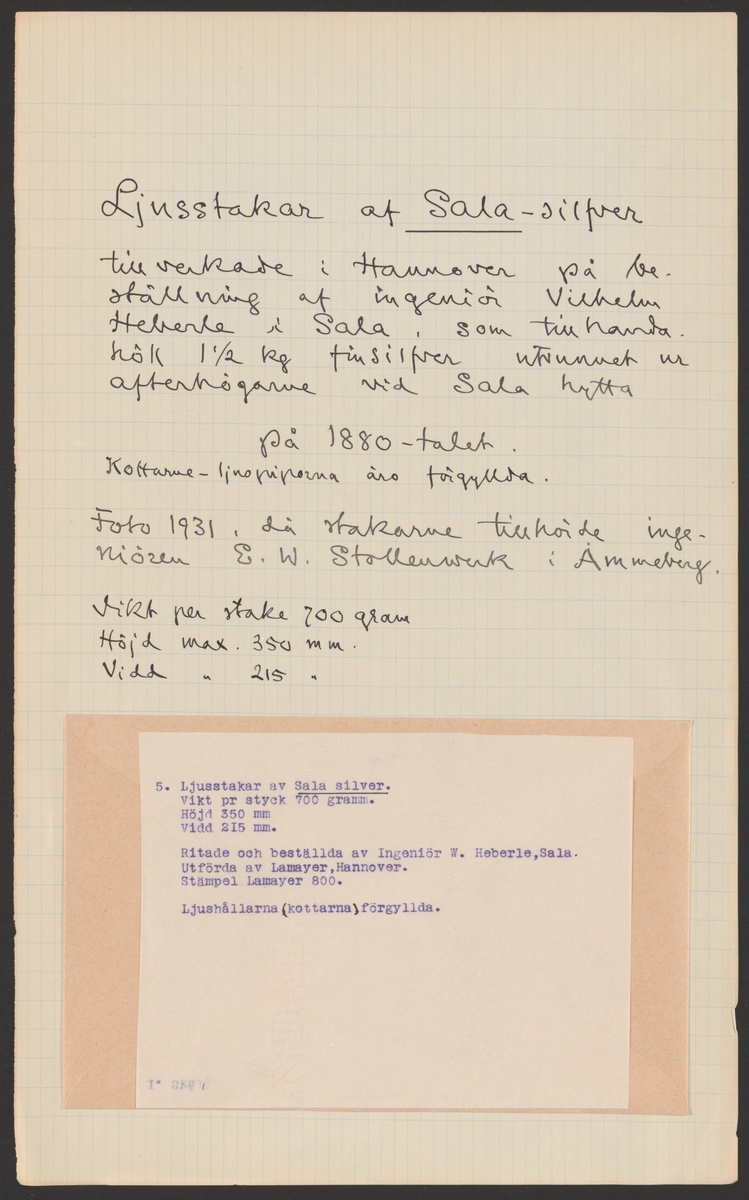 Ljusstakar af Sala-silfver
tillverkade i Hannover på be-
ställning af ingeniör Vilhelm
Heberle i Sala, som tillhanda-
höll 1½ kg finsilfver utvunnet ur
afterhögarne vid Sala hytta
på 1880-talet.
Kottarne-ljuspiporna äro förgyllda.
Foto 1931, då stakarne tillhörde inge-
niören E. W. Stollenwerk i Åmmeberg.
Vikt per stake 700 gram
Höjd max. 350 mm.
Vidd " 215 "
5. Ljusstakar av Sala silver.
Vikt pr styck 700 gramm.
Höjd 350 mm
Vidd 215 mm.
Ritade och beställda av Ingeniör W. Heberle,Sala.
Utförda av Lamayer,Hannover.
Stämpel Lamayer 800.
Ljushållarna(kottarna)förgyllda.